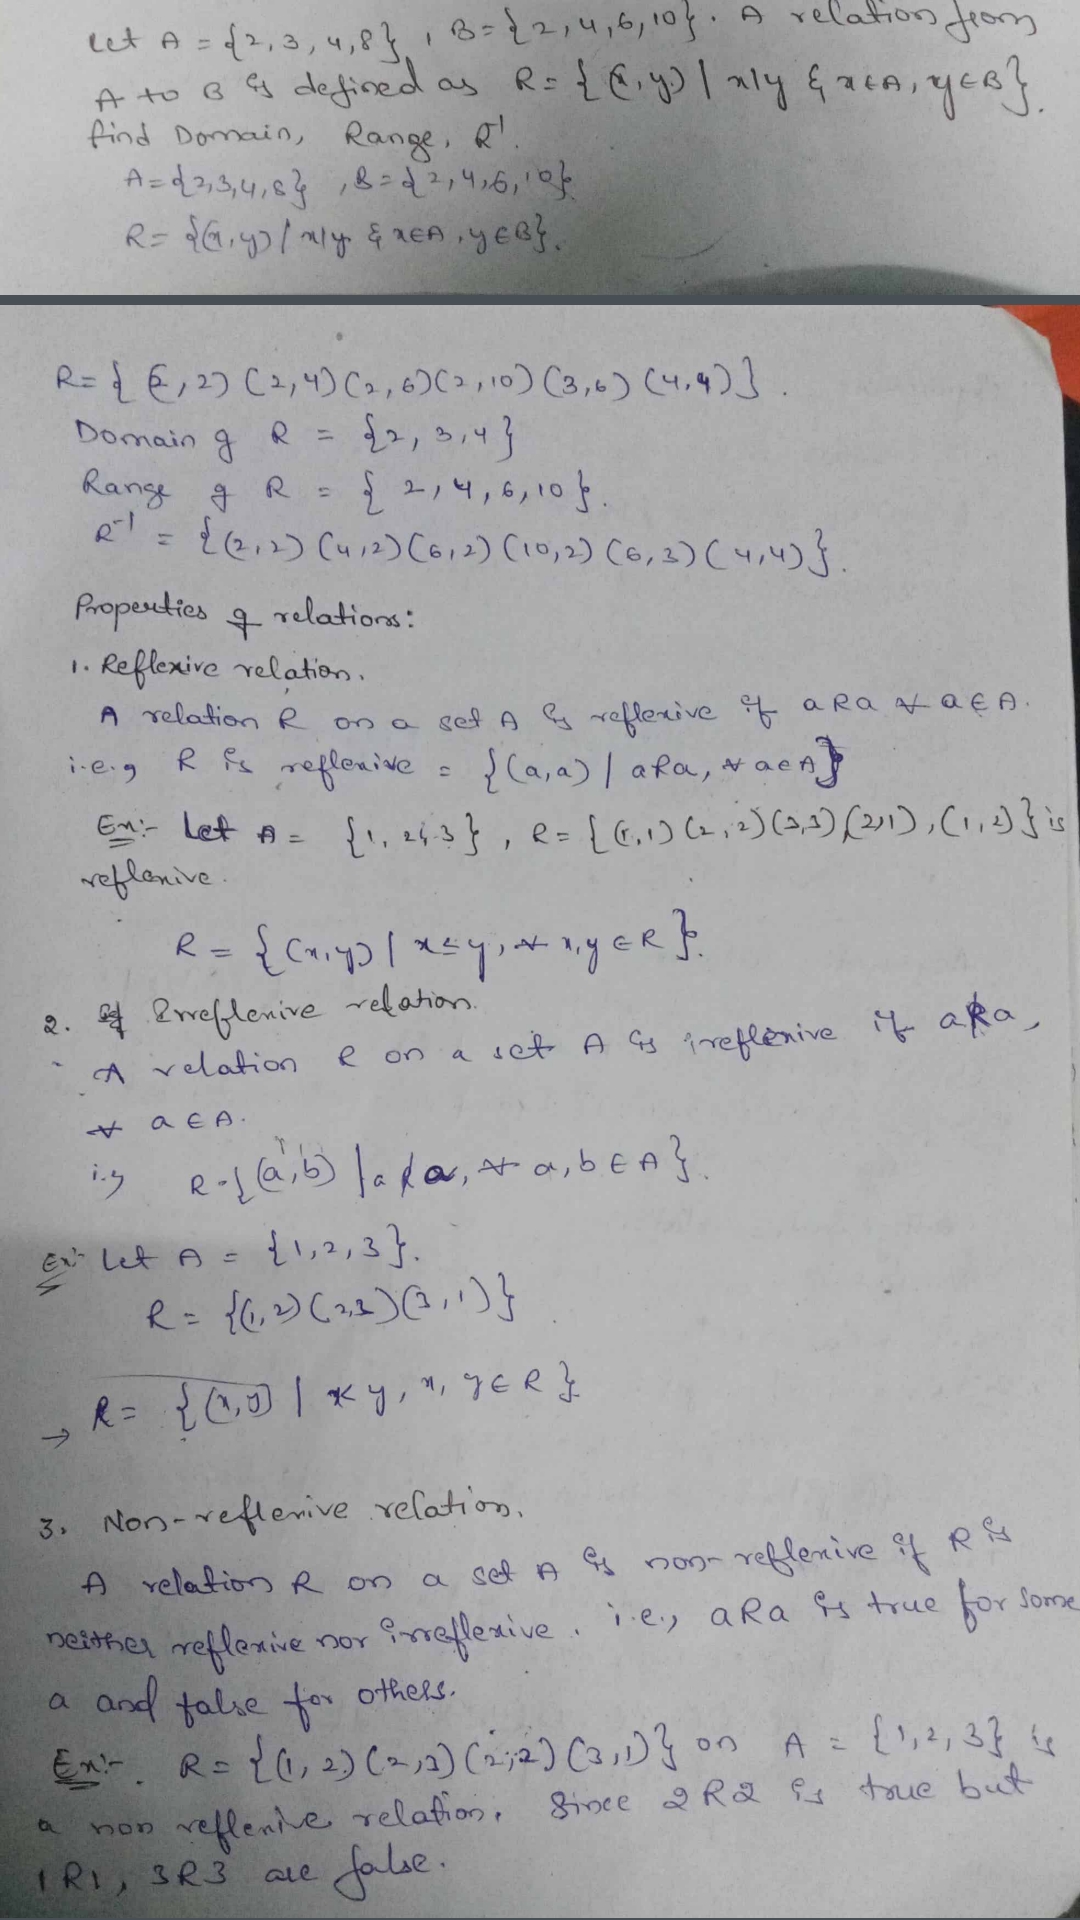 Let A = {2, 3, 4, 8}, B = {2, 4, 6, 10}. A relation from
A to B is defined as R = {(x, y) | x|y & x∈A, y∈B}.
find Domain, Range, R⁻¹.
A = {2,3,4,8}, B = {2,4,6,10}
R = {(x, y) / x|y & x∈A, y∈B}.
R = {(2, 2) (2, 4) (2, 6) (2, 10) (3, 6) (4, 4)}.
Domain of R = {2, 3, 4}
Range of R = {2, 4, 6, 10}.
R⁻¹ = {(2,2) (4,2) (6,2) (10,2) (6,3) (4,4)}.
Properties of relations:
1. Reflexive relation.
A relation R on a set A is reflexive if aRa ∀ a∈A.
i.e., R is reflexive = {(a,a) / aRa, ∀ a∈A}
Ex:- Let A = {1, 2, 3}, R = {(1,1) (2,2) (3,3) (2,1), (1,2)} is
reflexive.
R = {(x,y) / x≤y, ∀ x,y ∈ R}.
2. Irreflexive relation.
A relation R on a set A is irreflexive if aR̸a,
∀ a∈A.
R = {(a,b) / aR̸a, ∀ a,b∈A}.
Ex:- Let A = {1,2,3}.
R = {(1,2) (2,3) (3,1)}
→ R = {(x,y) / x<y, x, y∈R}
3. Non-reflexive relation.
A relation R on a set A is non-reflexive if R is
neither reflexive nor irreflexive. i.e., aRa is true for some
a and false for others.
Ex:- R = {(1,2) (2,3) (2,2) (3,1)} on A = {1,2,3} is
a non reflexive relation. Since 2R2 is true but
1R1, 3R3 are false.